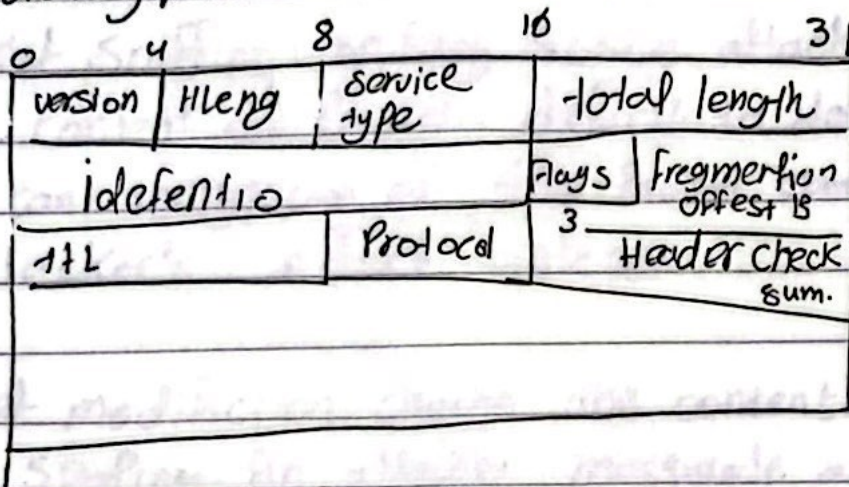 0 4 8 10 31
version HLeng service type total length
idefentio Flags fregmertion
offest 13
3
ttL Protocol Header check
sum.